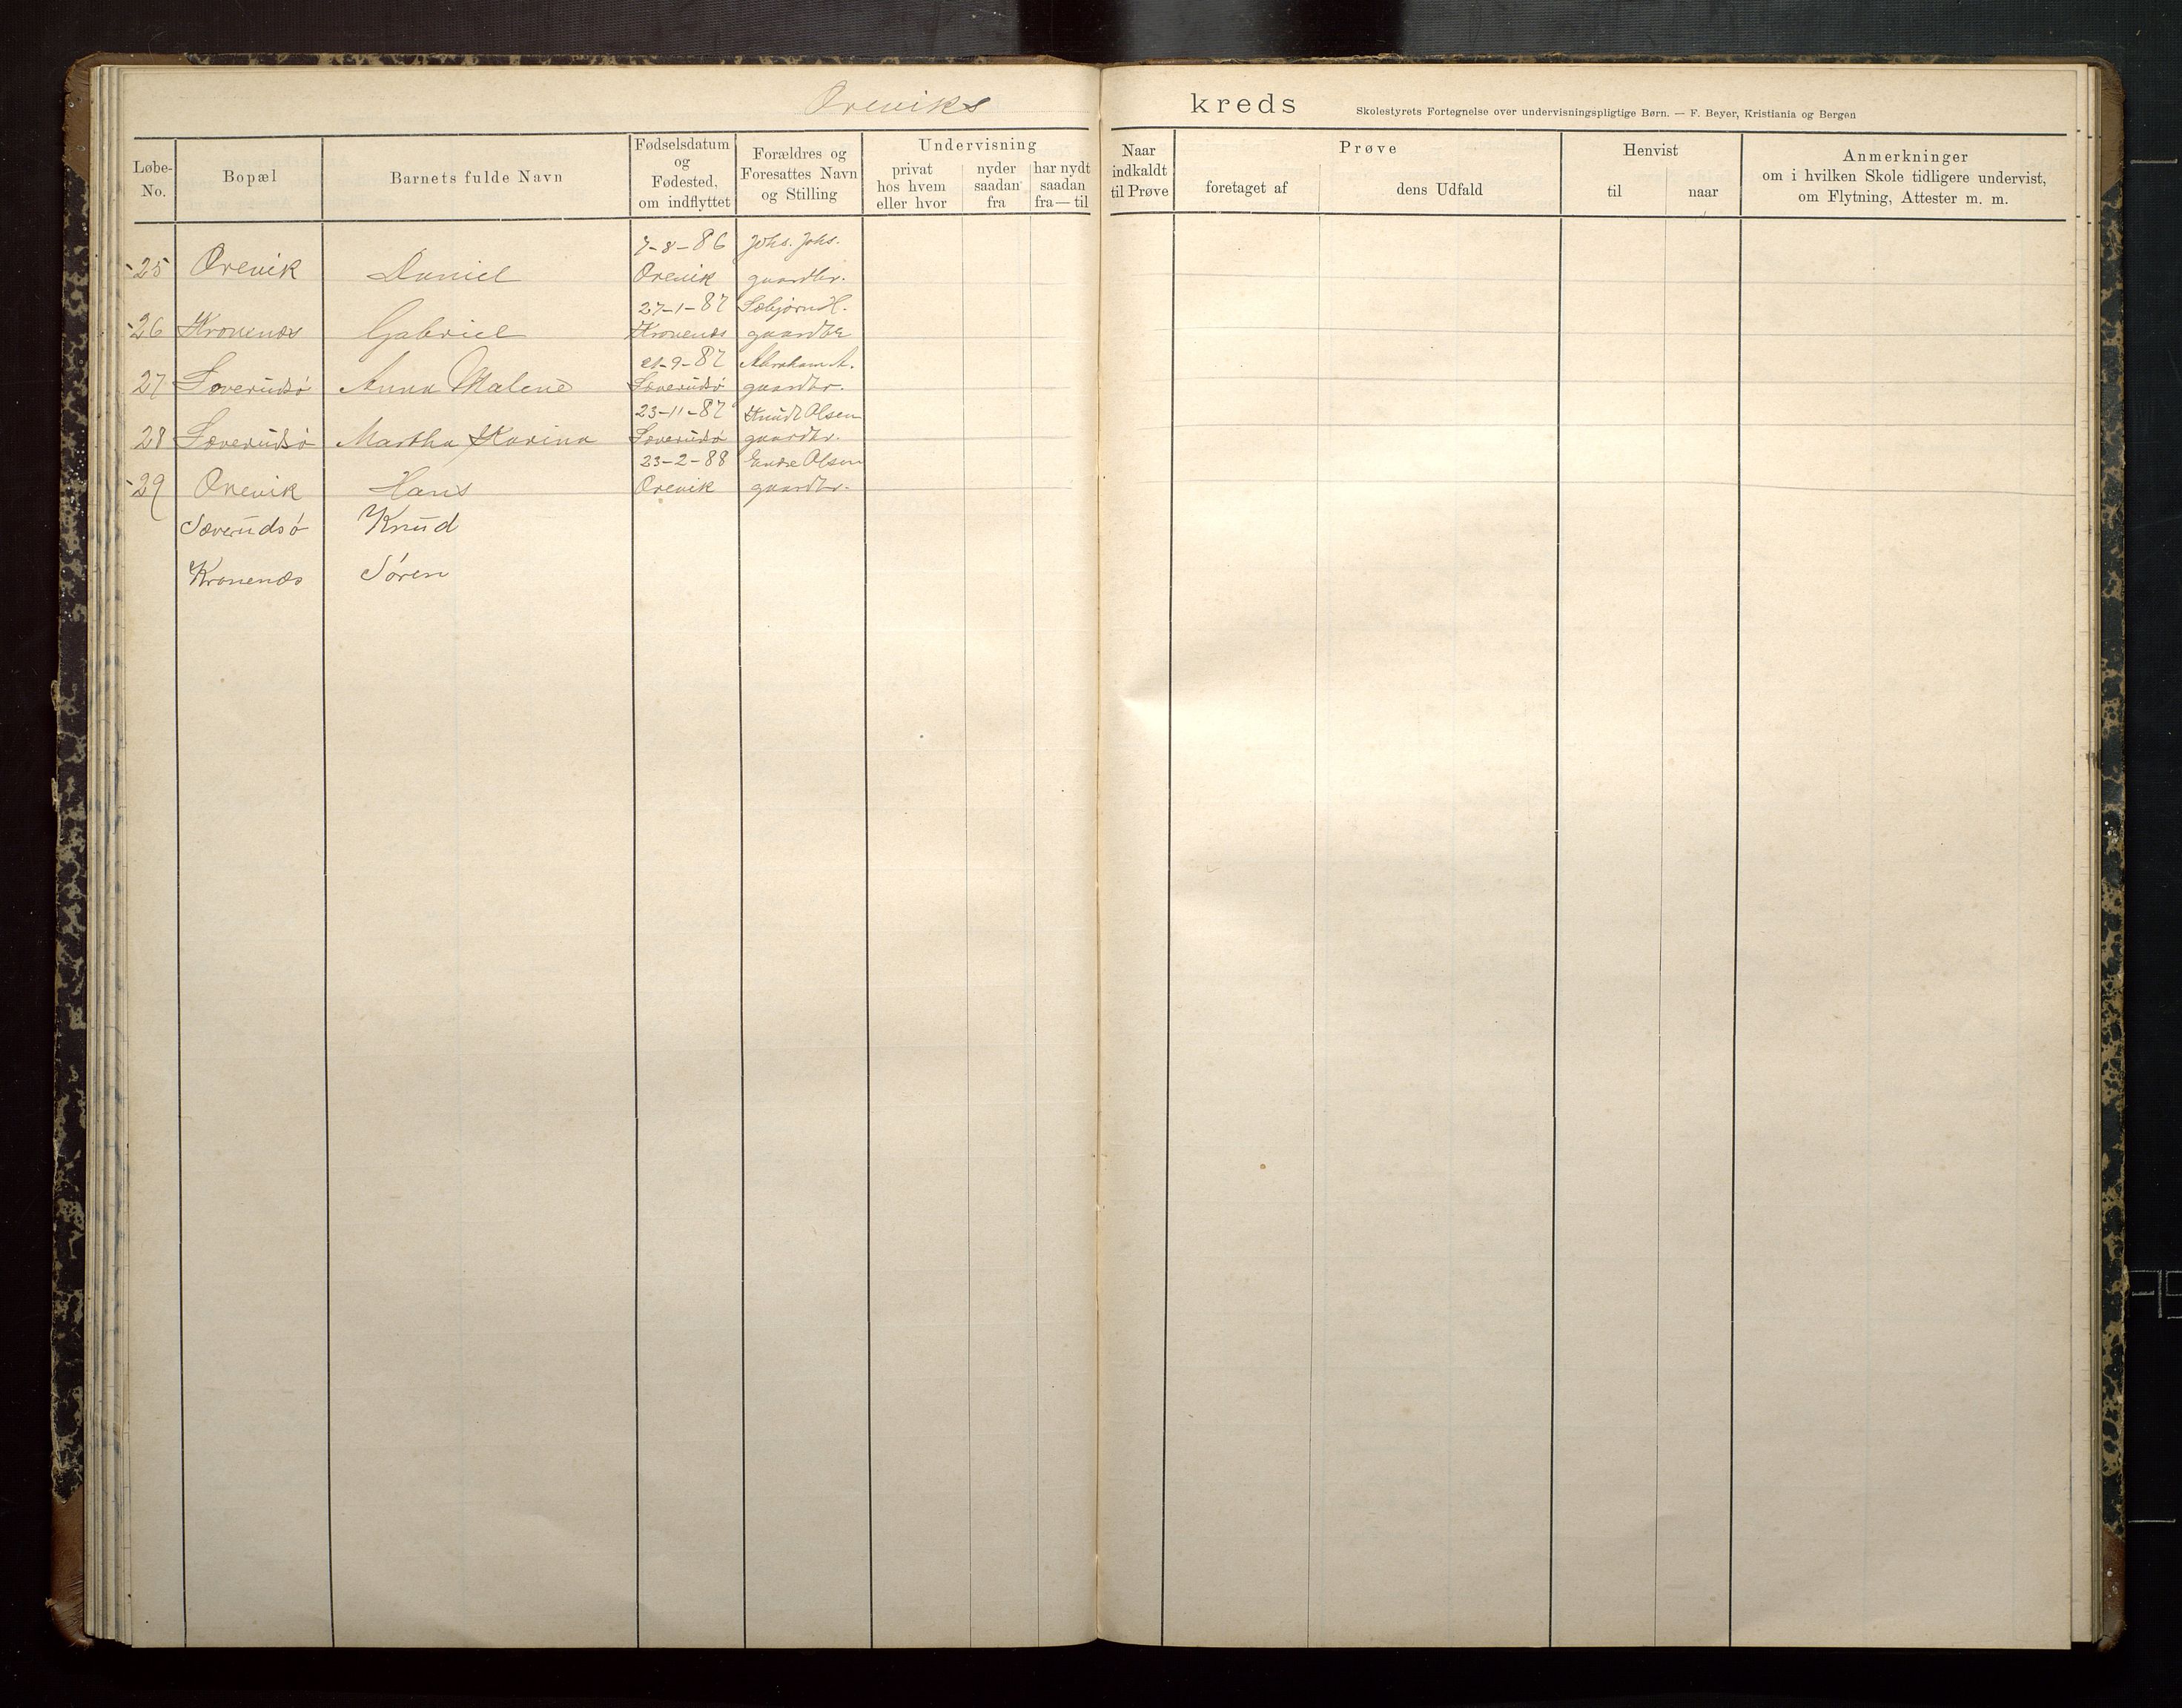 Øreviks kreds Skolestyrets Fortegnelse over undervisningspligtige Børn. — F. Beyer, Kristiania og Bergen
Løbe-No. Bopæl Barnets fulde Navn Fødselsdatum og Fødested, om indflyttet Forældres og Foresattes Navn og Stilling Undervisning privat hos hvem eller hvor nyder saadan fra har nydt saadan fra — til Naar indkaldt til Prøve Prøve foretaget af dens Udfald Henvist til naar Anmerkninger om i hvilken Skole tidligere undervist, om Flytning, Attester m. m.
7-8-86 Johs. Johs.
25 Ørevik Daniel Ørevik gaardbr.
27-1-87 Sæbjørn H.
26 Kronenæs Gabriel Kronenæs gaardbr
21-9-87 Abraham A.
27 Sæverudsø Anna Malene Sæverudsø gaardbr.
23-11-87 Knud Olsen
28 Sæverudsø Martha Karina Sæverudsø gaardbr.
23-2-88 Endre Olsen
29 Ørevik Hans Ørevik gaardbr.
Sæverudsø Knud
Kronenæs Søren